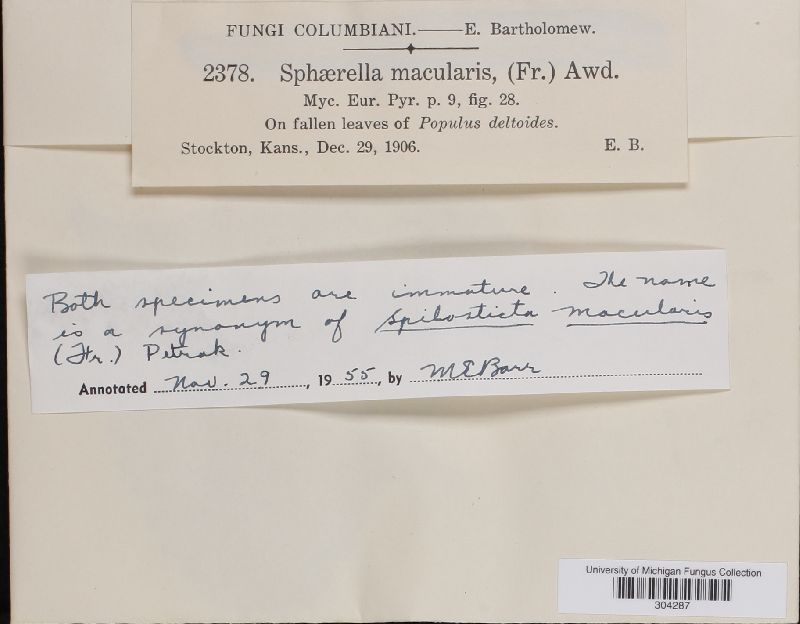 FUNGI COLUMBIANI.——E. Bartholomew.
2378. Sphærella macularis, (Fr.) Awd.
Myc. Eur. Pyr. p. 9, fig. 28.
On fallen leaves of Populus deltoides.
Stockton, Kans., Dec. 29, 1906. E. B.
Both specimens are immature. The name
is a synonym of Spilosticta macularis
(Fr.) Petrak.
Annotated Nov. 29, 1955, by M E Barr
University of Michigan Fungus Collection
304287